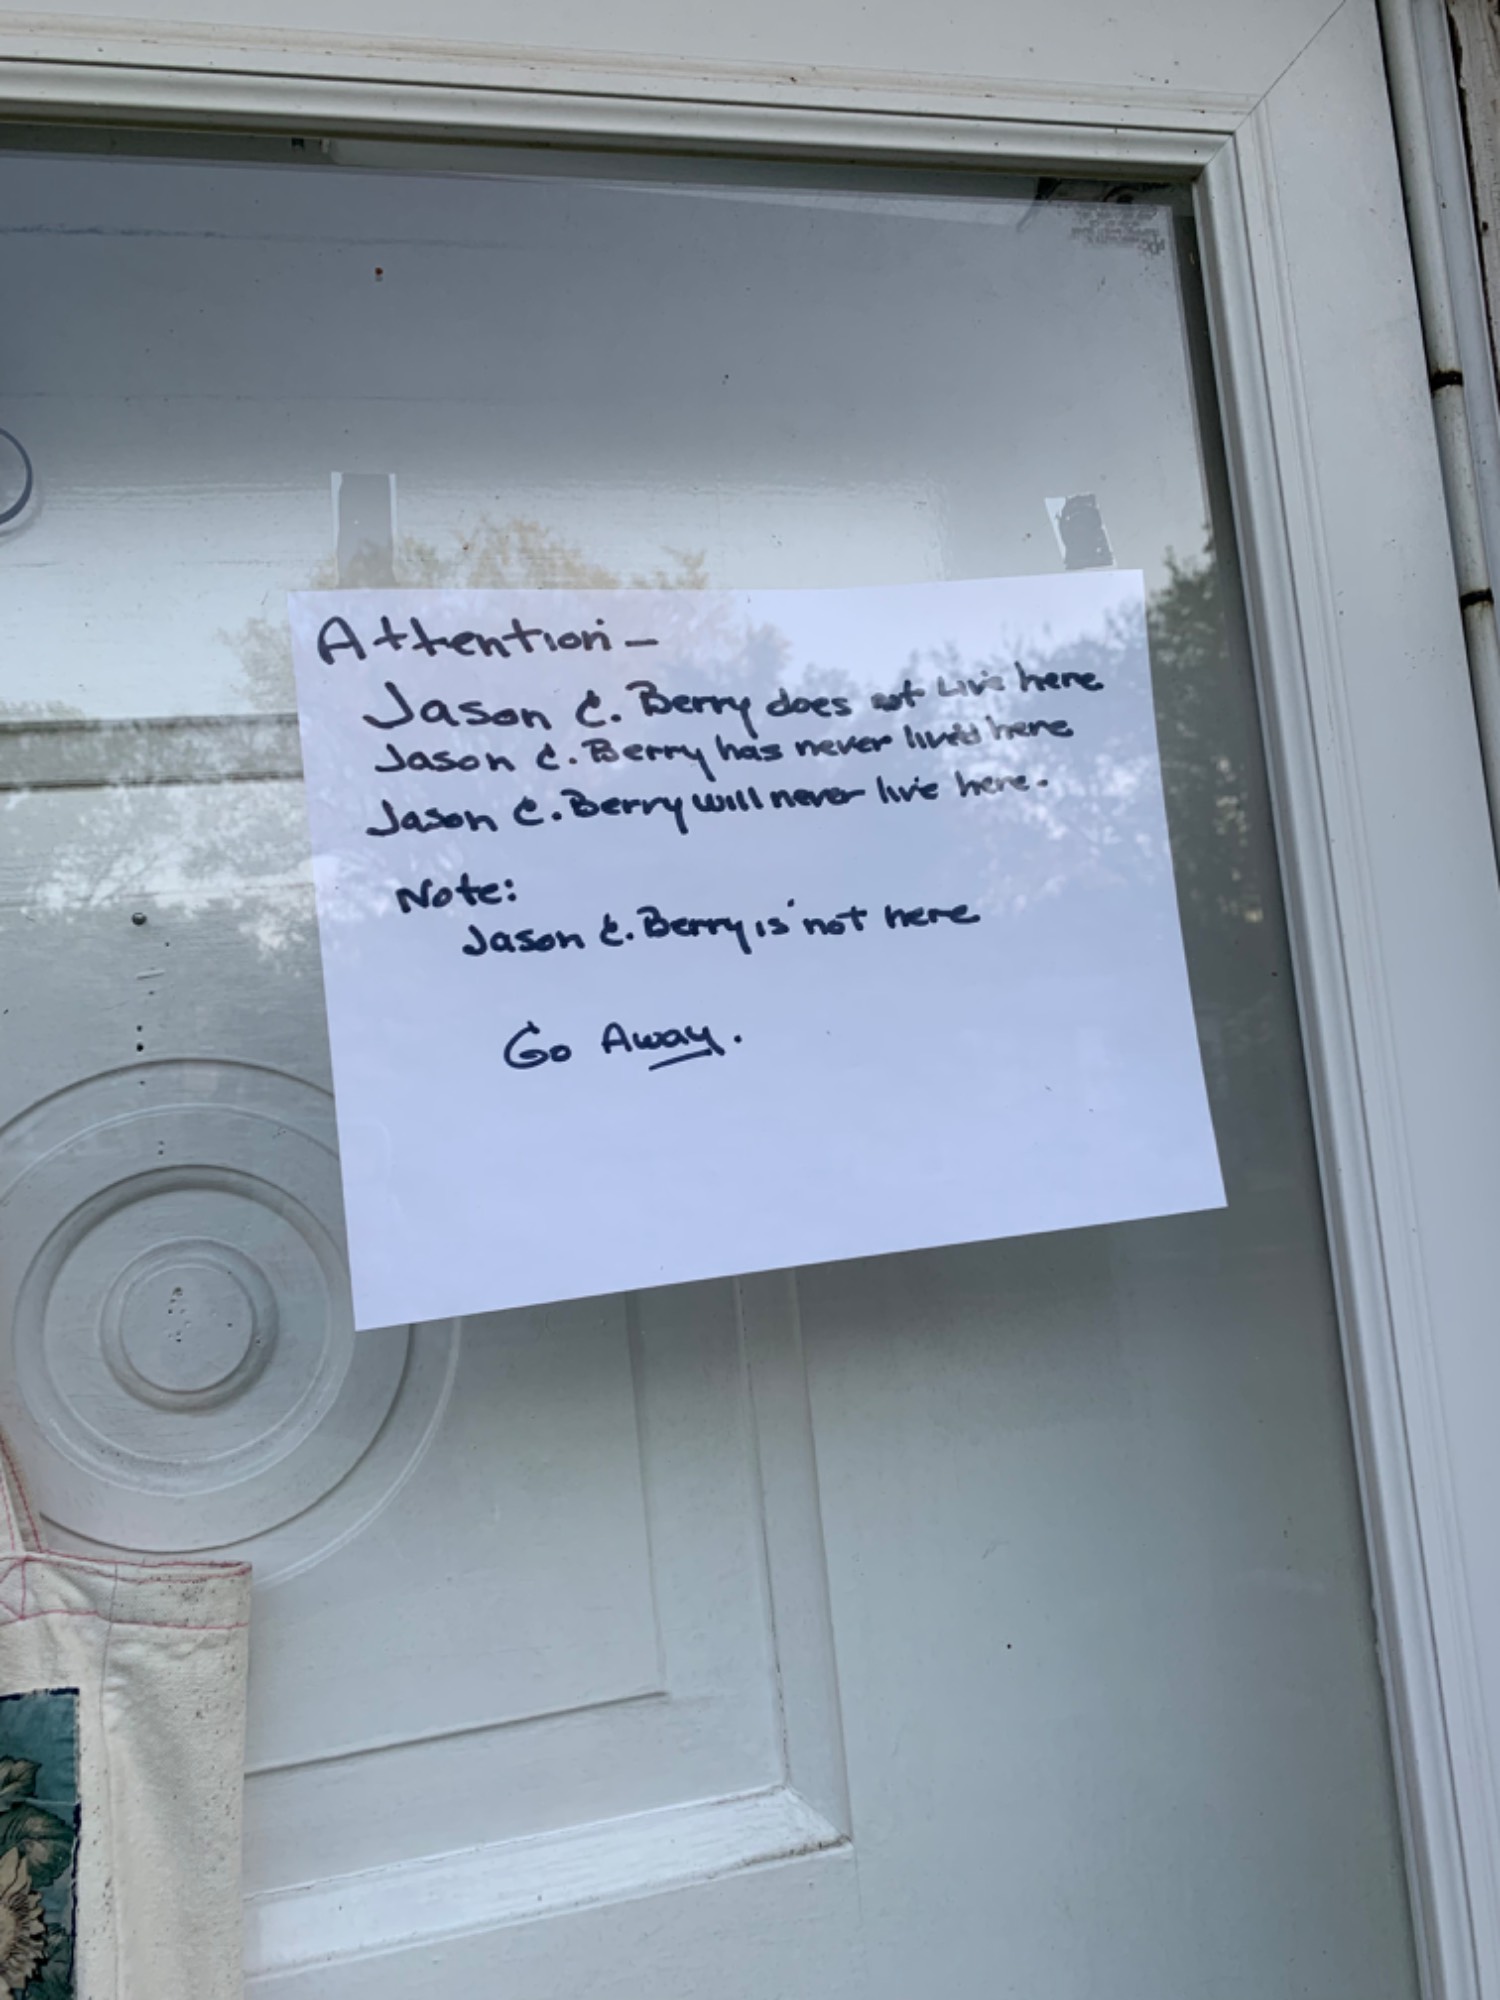 Attention –
Jason C. Berry does not Live here
Jason C. Berry has never lived here
Jason C. Berry will never live here.
Note:
Jason C. Berry is not here
Go Away.